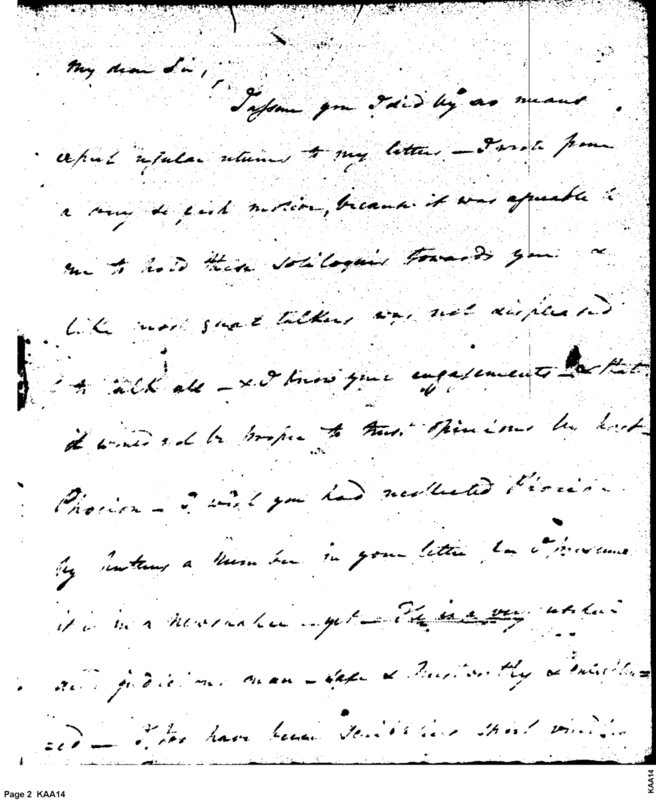 My dear Sir,
I assure you I did by no means
expect regular returns to my letters – I wrote from
a very selfish motive, because it was agreeable to
me to hold these soliloquies towards you &
like most great talkers was not displeased
to talk all – & I know your engagements – & that
it would not be proper to trust opinions by post –
Phocion – I wish you had neglected Phocion
by putting a Number in your letter for I presume
it is in a Newspaper – yet – He is a very useful
and judicious man – safe & trustworthy &
I too have been short
Page 2 KAA14
KAA14